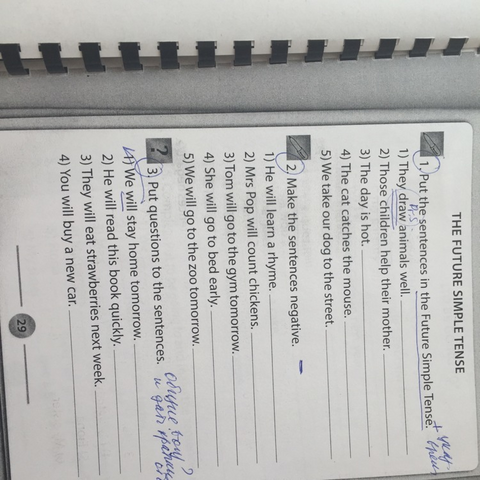 THE FUTURE SIMPLE TENSE
1. Put the sentences in the Future Simple Tense.
1) They draw animals well.
2) Those children help their mother.
3) The day is hot.
4) The cat catches the mouse.
5) We take our dog to the street.
2. Make the sentences negative. -
1) He will learn a rhyme.
2) Mrs Pop will count chickens.
3) Tom will go to the gym tomorrow.
4) She will go to bed early.
5) We will go to the zoo tomorrow.
? 3. Put questions to the sentences.
1) We will stay home tomorrow.
2) He will read this book quickly.
3) They will eat strawberries next week.
4) You will buy a new car.
29